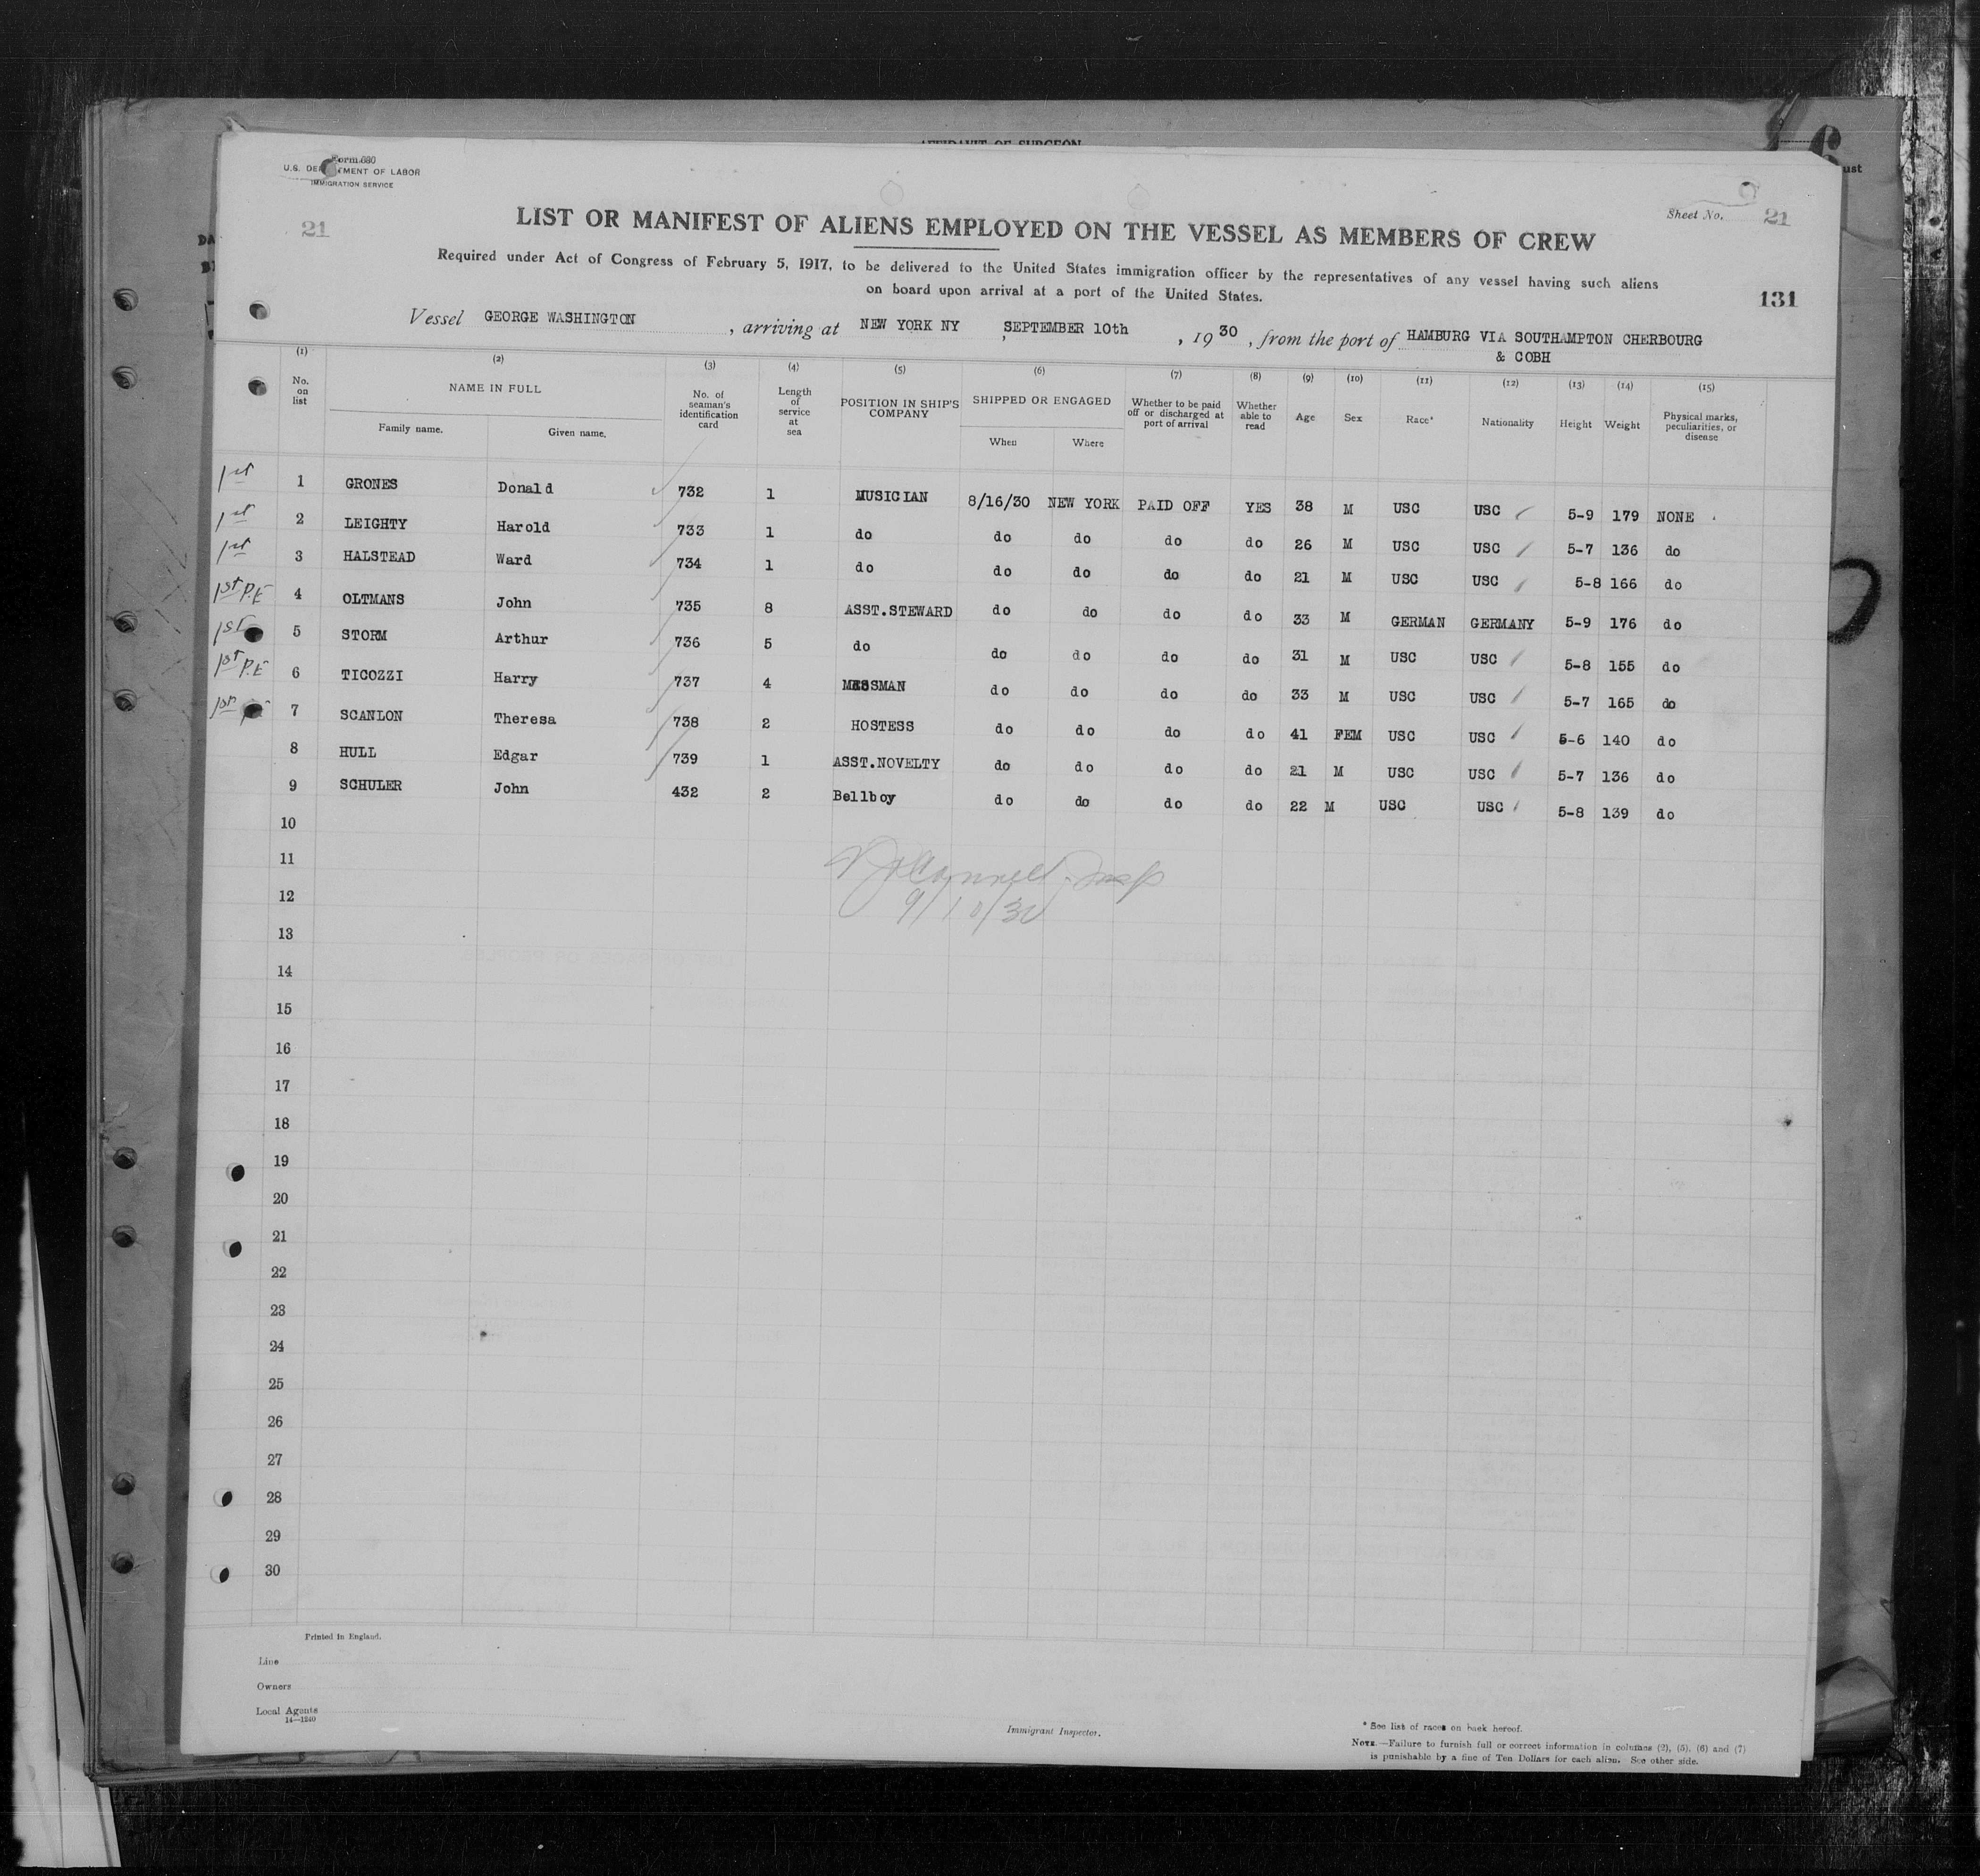 AFFIDAVIT OF SURGEON
Form 680
U.S. DEPARTMENT OF LABOR
IMMIGRATION SERVICE
21
LIST OR MANIFEST OF ALIENS EMPLOYED ON THE VESSEL AS MEMBERS OF CREW
Sheet No. 21
Required under Act of Congress of February 5, 1917, to be delivered to the United States immigration officer by the representatives of any vessel having such aliens
on board upon arrival at a port of the United States.
131
Vessel GEORGE WASHINGTON, arriving at NEW YORK NY, SEPTEMBER 10th, 1930, from the port of HAMBURG VIA SOUTHAMPTON CHERBOURG
& COBH
(1) (2) (3) (4) (5) (6) (7) (8) (9) (10) (11) (12) (13) (14) (15)
No. on list NAME IN FULL Family name. Given name. No. of seaman's identification card Length of service at sea POSITION IN SHIP'S COMPANY SHIPPED OR ENGAGED When Where Whether to be paid off or discharged at port of arrival Whether able to read Age Sex Race* Nationality Height Weight Physical marks, peculiarities, or disease
1st 1 GRONES Donald 732 1 MUSICIAN 8/16/30 NEW YORK PAID OFF YES 38 M USC USC 5-9 179 NONE
1st 2 LEIGHTY Harold 733 1 do do do do do 26 M USC USC 5-7 136 do
1st 3 HALSTEAD Ward 734 1 do do do do do 21 M USC USC 5-8 166 do
1st P.E 4 OLTMANS John 735 8 ASST.STEWARD do do do do 33 M GERMAN GERMANY 5-9 176 do
1st 5 STORM Arthur 736 5 do do do do do 31 M USC USC 5-8 155 do
1st P.E 6 TICOZZI Harry 737 4 MESSMAN do do do do 33 M USC USC 5-7 165 do
1st 7 SCANLON Theresa 738 2 HOSTESS do do do do 41 FEM USC USC 5-6 140 do
8 HULL Edgar 739 1 ASST.NOVELTY do do do do 21 M USC USC 5-7 136 do
9 SCHULER John 432 2 Bellboy do do do do 22 M USC USC 5-8 139 do
10
11
12
9/10/30
13
14
15
16
17
18
19
20
21
22
23
24
25
26
27
28
29
30
Printed in England.
Line
Owners
Local Agents
14—1240
Immigrant Inspector.
* See list of races on back hereof.
NOTE.—Failure to furnish full or correct information in columns (2), (5), (6) and (7)
is punishable by a fine of Ten Dollars for each alien. See other side.